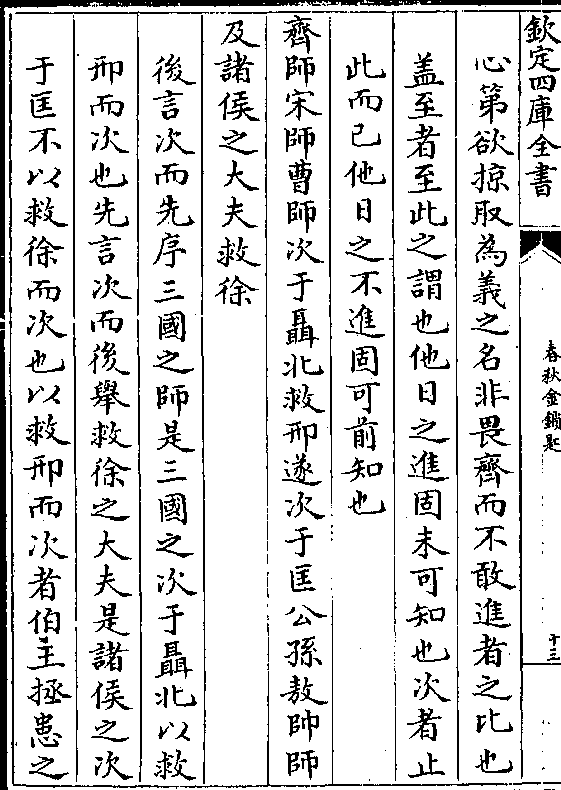 欽定四庫全書
春秋金鎖匙
十三
心第欲掠取為義之名非畏齊而不敢進者之比也
盖至者至此之謂也他日之進固未可知也次者止
此而已他日之不進固可前知也
齊師宋師曹師次于聶北救邢遂次于匡公孫敖帥師
及諸侯之大夫救徐
後言次而先序三國之師是三國之次于聶北以救
邢而次也先言次而後舉救徐之大夫是諸侯之次
于匡不以救徐而次也以救邢而次者伯主拯患之